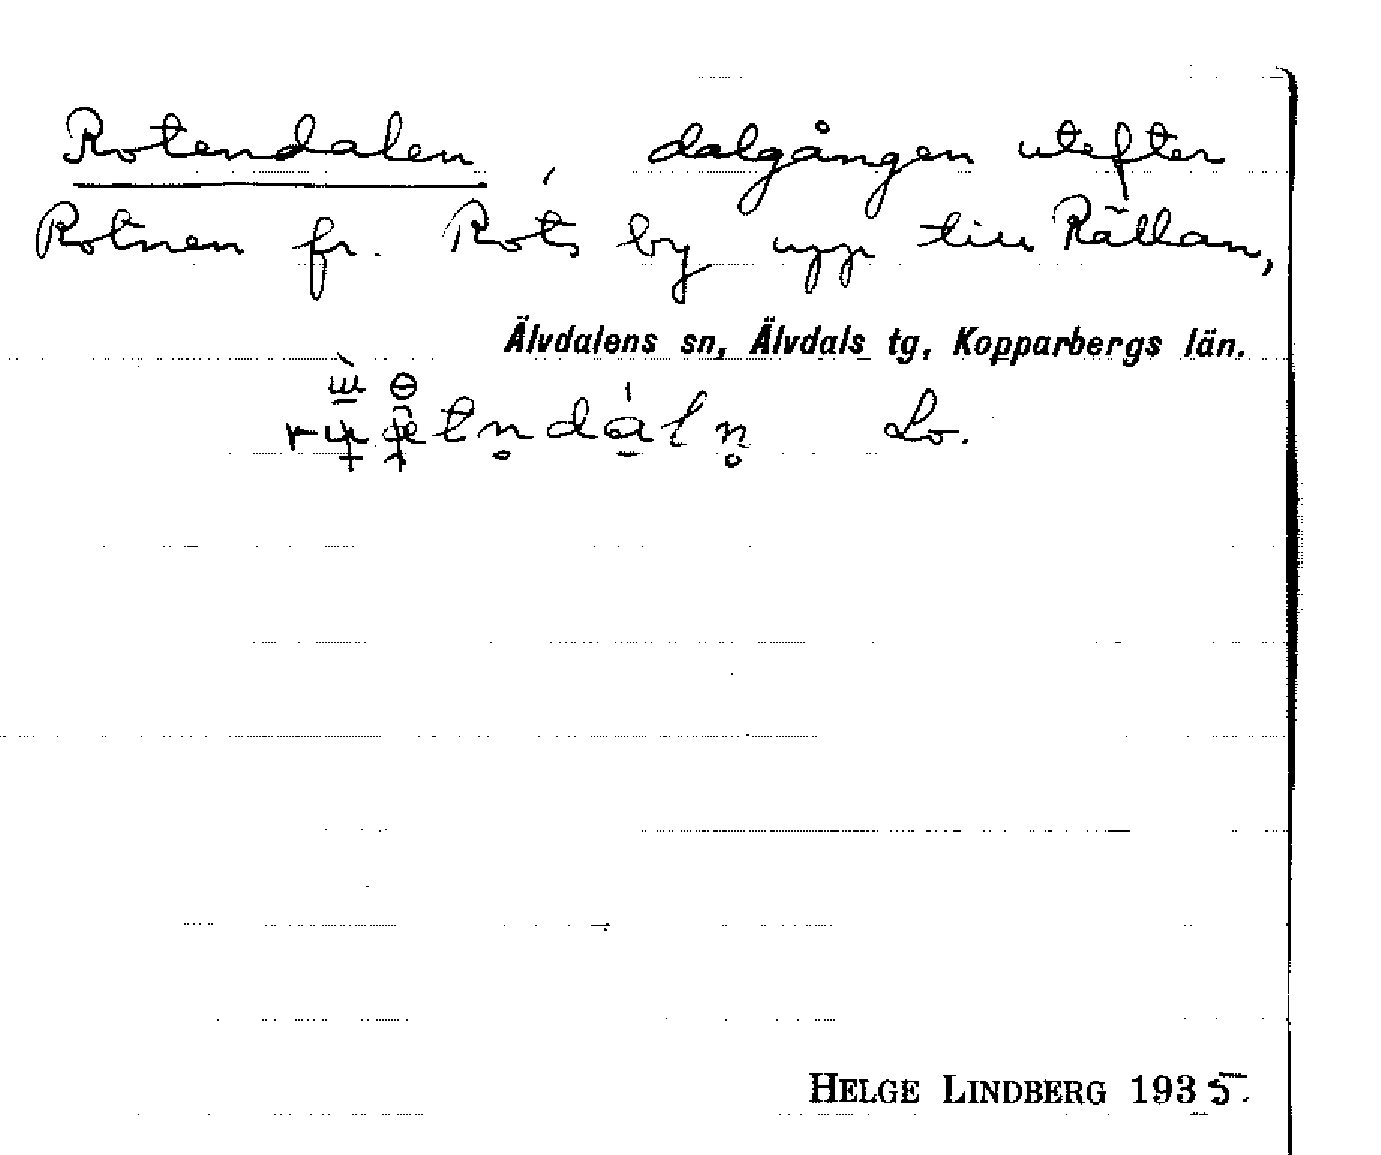 Rotendalen, dalgången utefter
Rotnen fr. Rots by upp till Rällan,
Älvdalens sn, Älvdals tg, Kopparbergs län.
Lo.
HELGE LINDBERG 1935.